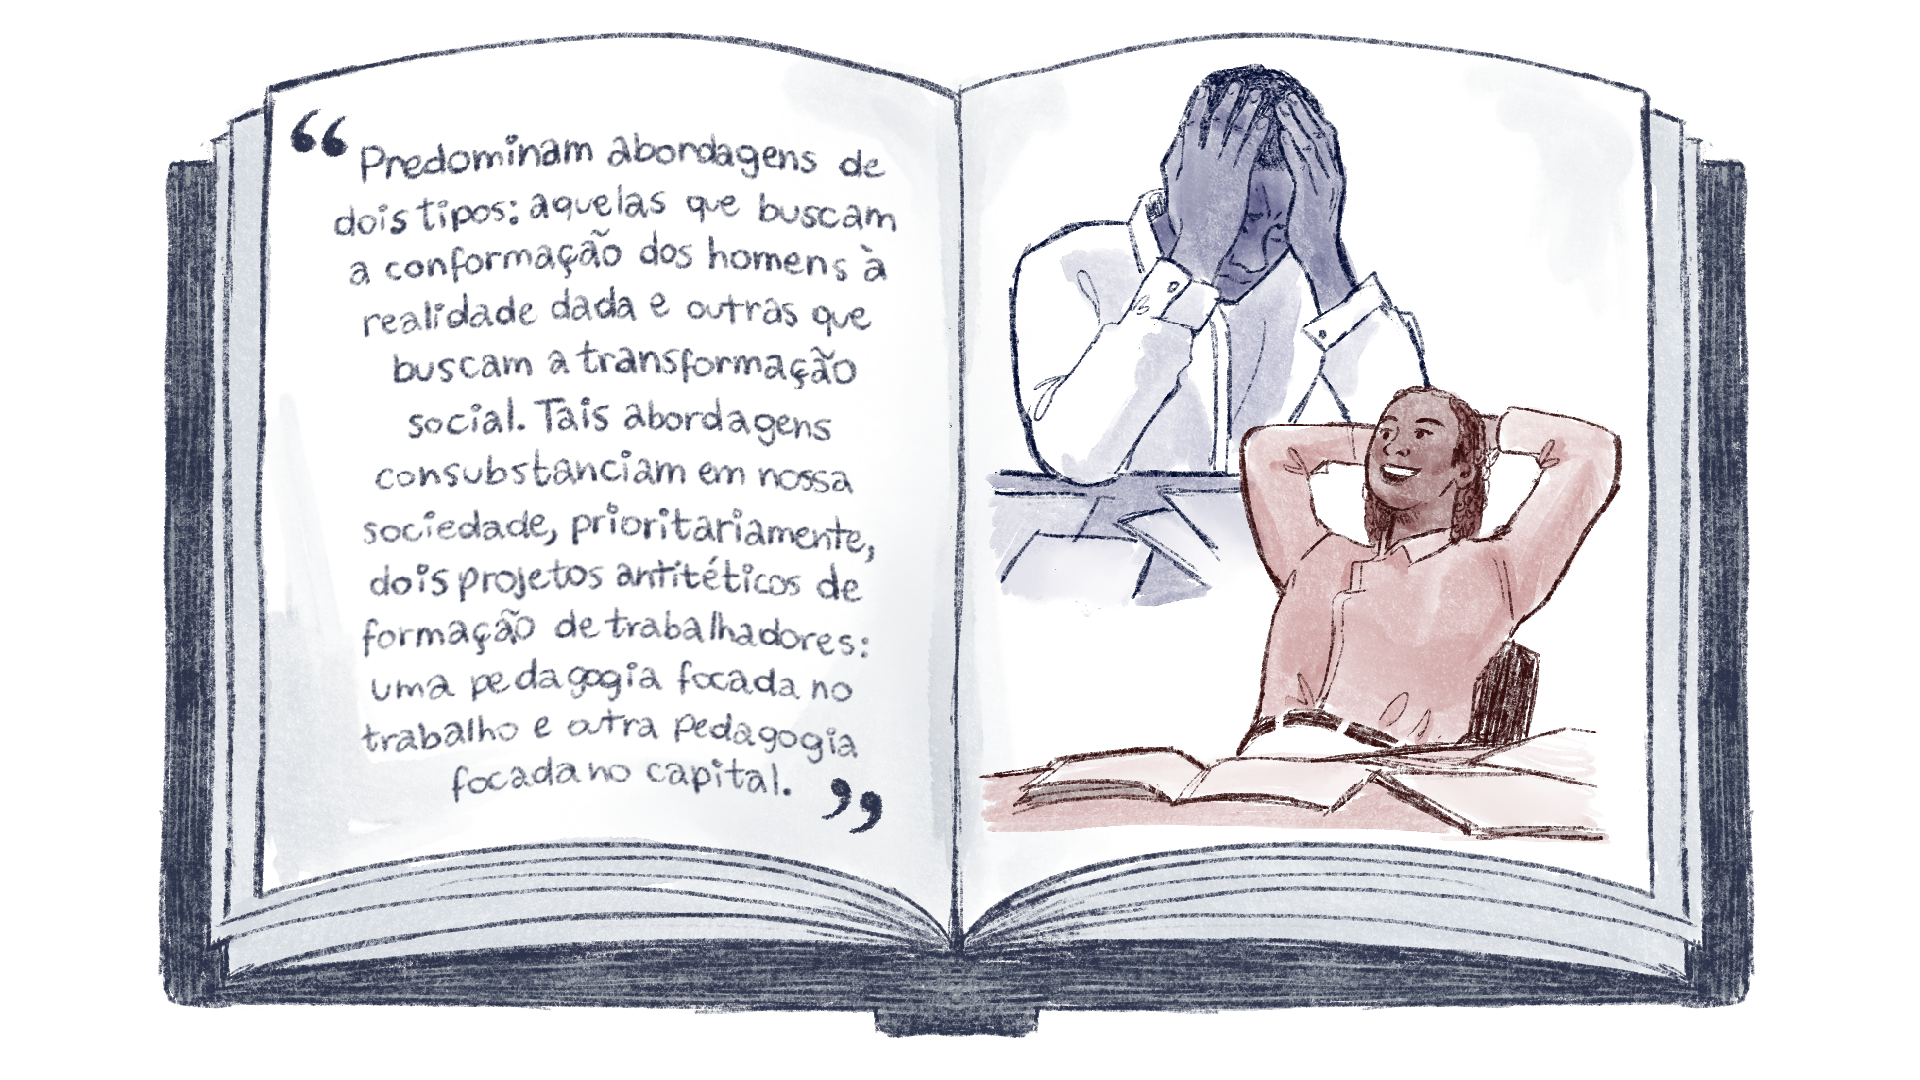 “Predominam abordagens de
dois tipos: aquelas que buscam
a conformação dos homens à
realidade dada e outras que
buscam a transformação
social. Tais abordagens
consubstanciam em nossa
sociedade, prioritariamente,
dois projetos antitéticos de
formação de trabalhadores:
uma pedagogia focada no
trabalho e outra pedagogia
focada no capital.”